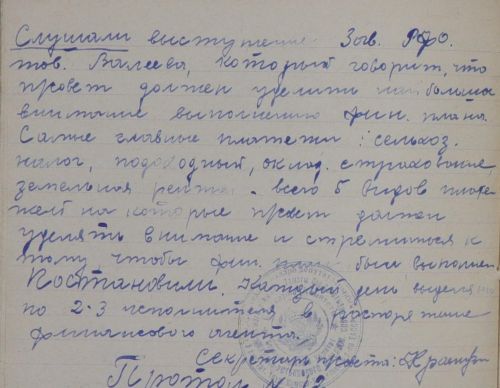 Слушали выступление Зав. РФО.
тов. Валеева, который говорит, что
п/совет должен уделить наибольшое
внимание выполнению фин. плана
Самые главные платежи: сельхоз.
налог, подоходный, оклад. страхование,
земельная рента - всего 5 видов плате-
жей на которые п/совет должен
уделять внимание и стремиться к
тому, чтобы фин. план был выполнен
Постановили: Каждый день выделять
по 2-3 исполнителя в распоряжение
финансового агента.
Секретарь п/совета:
Протокол № 2